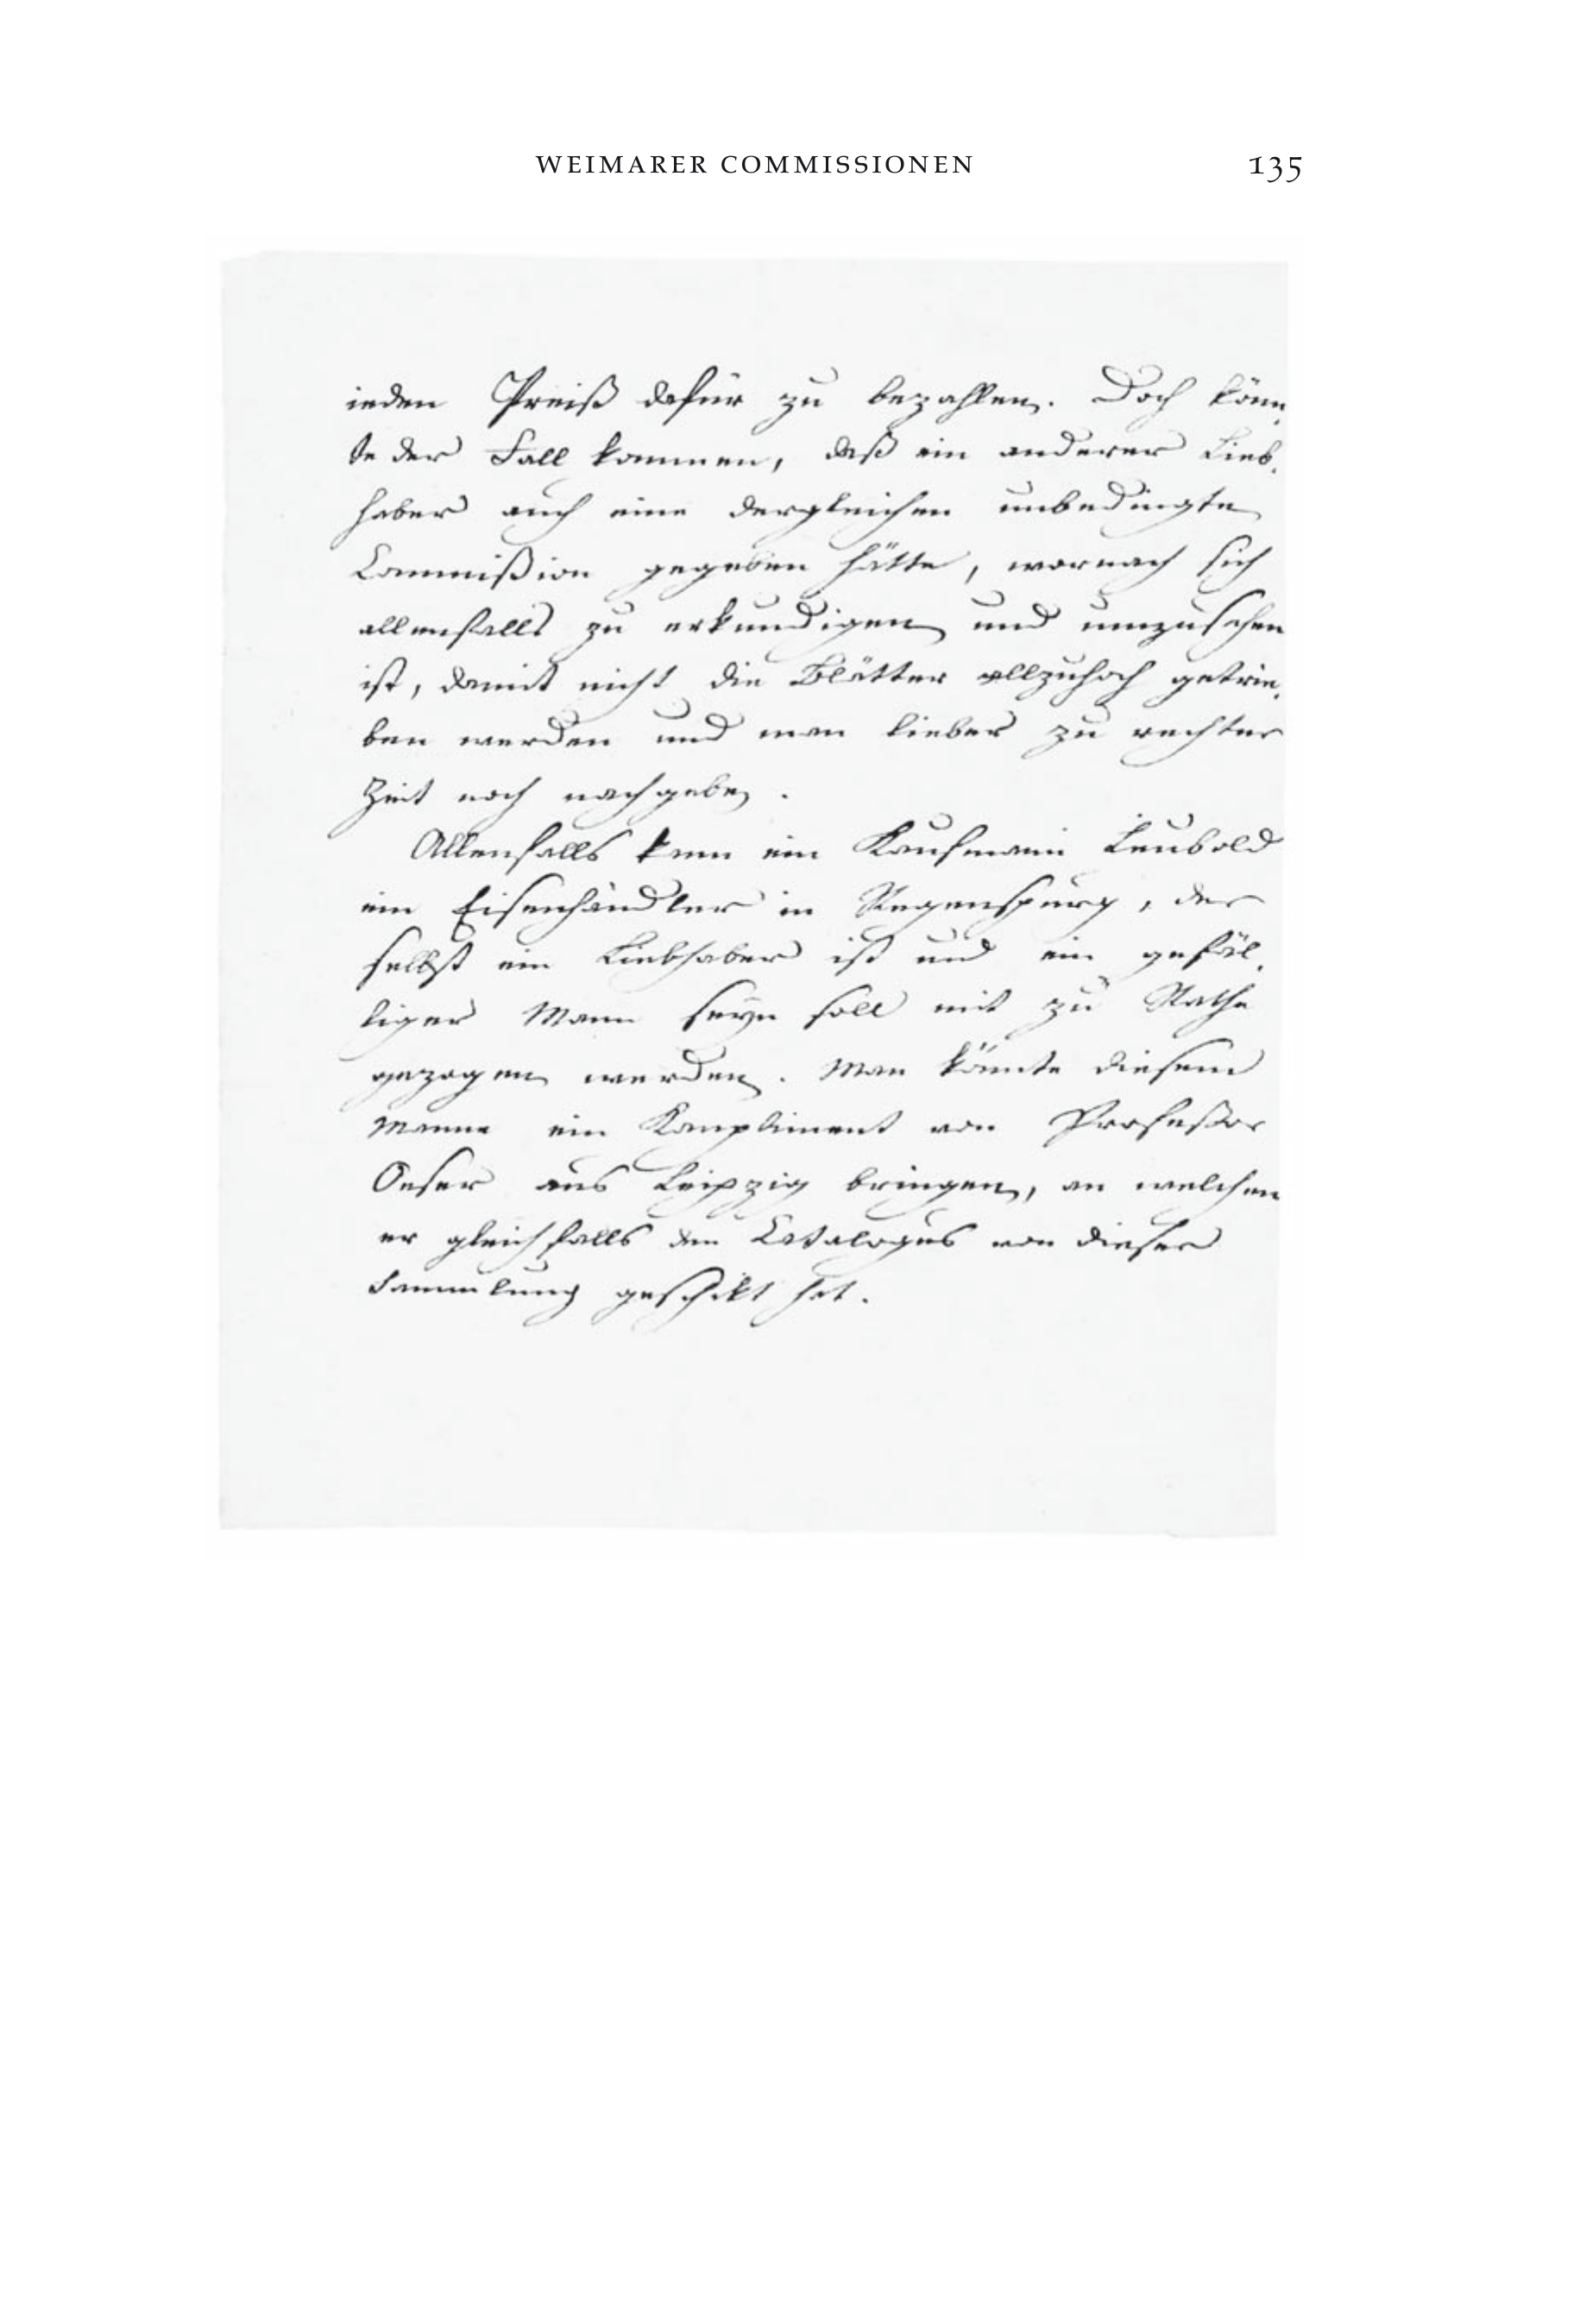 WEIMARER COMMISSIONEN 135
ieden Preiß dafür zu bezahlen. Doch könn,
te der Fall kommen, daß ein anderer Lieb,
haber auch eine dergleichen unbedingte
Commißion gegeben hätte, wornach sich
allenfalls zu erkundigen und umzusehen
ist, damit nicht die Blätter allzuhoch getrie,
ben werden und man lieber zu rechter
Zeit noch nachgebe.
Allenfalls kann ein Kaufmann Leubold
ein Eisenhändler in Regenspurg, der
selbst ein Liebhaber ist und ein gefäl,
liger Mann seyn soll mit zu Rathe
gezogen werden. Man könnte diesem
Manne ein Kompliment von Profeßor
Oeser aus Leipzig bringen, an welchen
er gleichfalls den Catalogus von dieser
Sammlung geschikt hat.